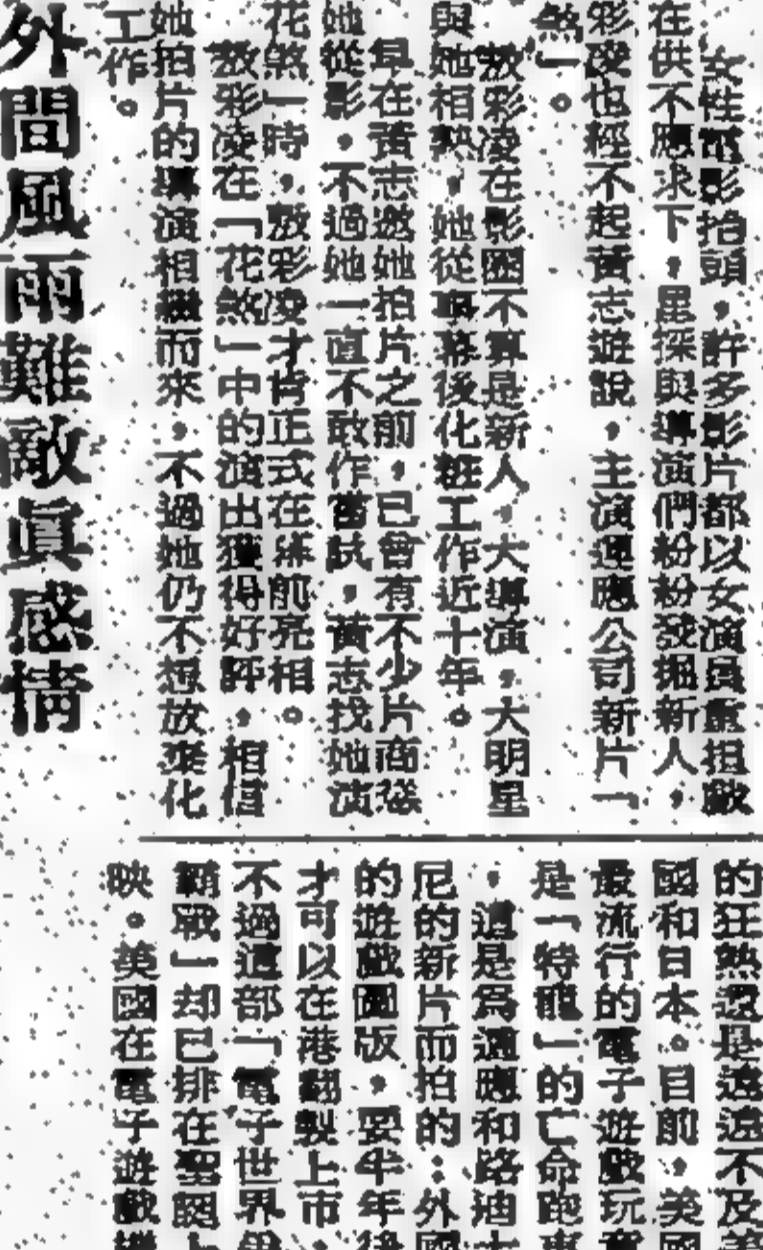 女性電影抬頭，許多影片都以女演員重担敵
在供不應求下，星探與導演們紛紛發掘新人，
彩凌也經不起黃志遊說，主演運應公司新片「
煞」。
敖彩凌在影圈不算是新人，大導演，大明星
與她相熟，她從事幕後化粧工作近十年。
早在黃志邀她拍片之前，已曾有不少片商
她從影，不過她一直不敢作嘗試，黃志找她演
花煞」時，敖彩凌才肯正式在幕前亮相。
敖彩凌在「花煞」中的演出獲得好評，相信
她拍片的導演相繼而來，不過她仍不想放棄化
工作。
外間風雨難敵眞感情
的狂熱還是遠遠不及美
國和日本。目前，美國
最流行的電子遊戲玩
是「特龍」的亡命跑車
，這是爲適應和路迪士
尼的新片而拍的：外國
的遊戲圖版，要半年後
才可以在港翻製上市
不過這部「電子世界爭
霸戰」却已排在聖誕上
映。美國在電子遊戲機